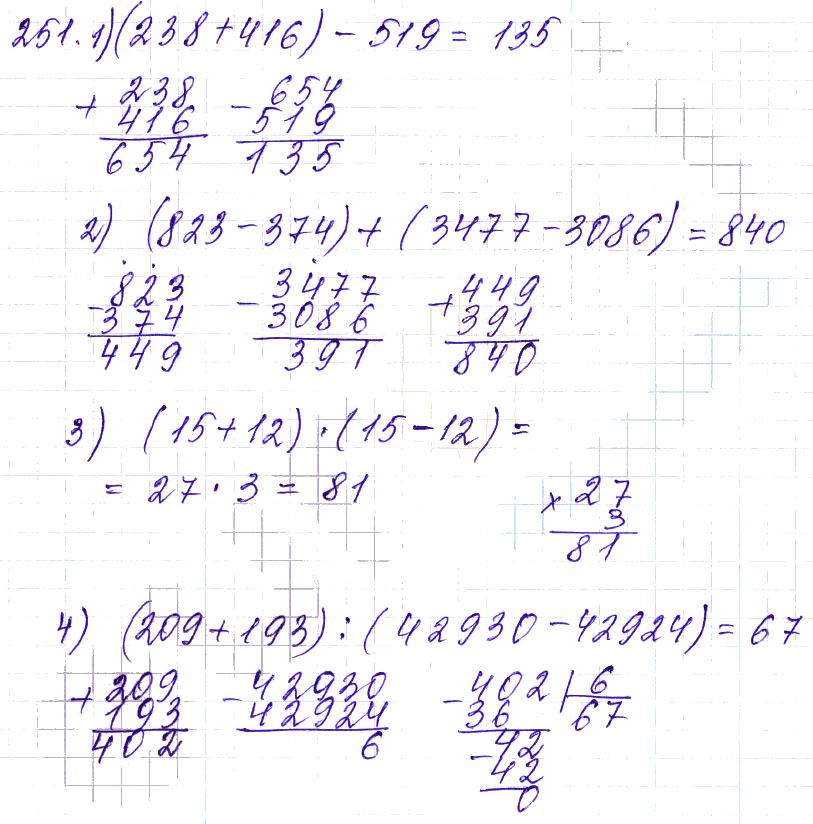 251. 1) (238+416) - 519 = 135
+ 238 - 654
416 519
654 135
2) (823 - 374) + (3477 - 3086) = 840
- 823 - 3477 + 449
374 3086 391
449 391 840
3) (15+12) · (15-12) =
= 27 · 3 = 81 × 27
3
81
4) (209+193) : (42930 - 42924) = 67
+ 209 - 42930 - 402 | 6
193 42924 36 67
402 6 - 42
42
0